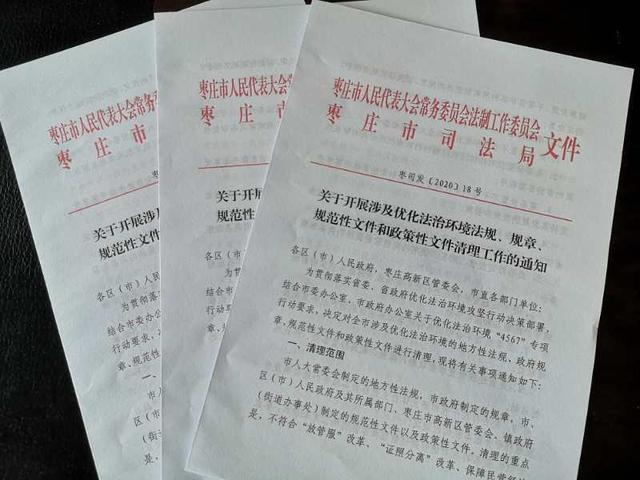 枣庄市人民代表大会常务
枣庄市
枣
关于开展涉及
规范性文件
各区（市）
为贯彻落
结合市委办公
行动要求，
章、规范性
一、
枣庄市人民代表大会常
枣庄
关于开展
规范性文
各区（市）
为贯彻
结合市委
行动要求
章、规范
一、
市人
区（市）
（街道
是，
枣庄市人民代表大会常务委员会法制工作委员会
枣庄市司法局
文件
枣司发〔2020〕18号
关于开展涉及优化法治环境法规、规章、
规范性文件和政策性文件清理工作的通知
各区（市）人民政府，枣庄高新区管委会，市直各部门单位：
为贯彻落实省委、省政府优化法治环境攻坚行动决策部署，
结合市委办公室、市政府办公室关于优化法治环境“4567”专项
行动要求，决定对全市涉及优化法治环境的地方性法规、政府规
章、规范性文件和政策性文件进行清理，现将有关事项通知如下：
一、清理范围
市人大常委会制定的地方性法规，市政府制定的规章，市、
区（市）人民政府及其所属部门、枣庄市高新区管委会、镇政府
（街道办事处）制定的规范性文件以及政策性文件。清理的重点
是，不符合“放管服”改革、“证照分离”改革、保障民营经